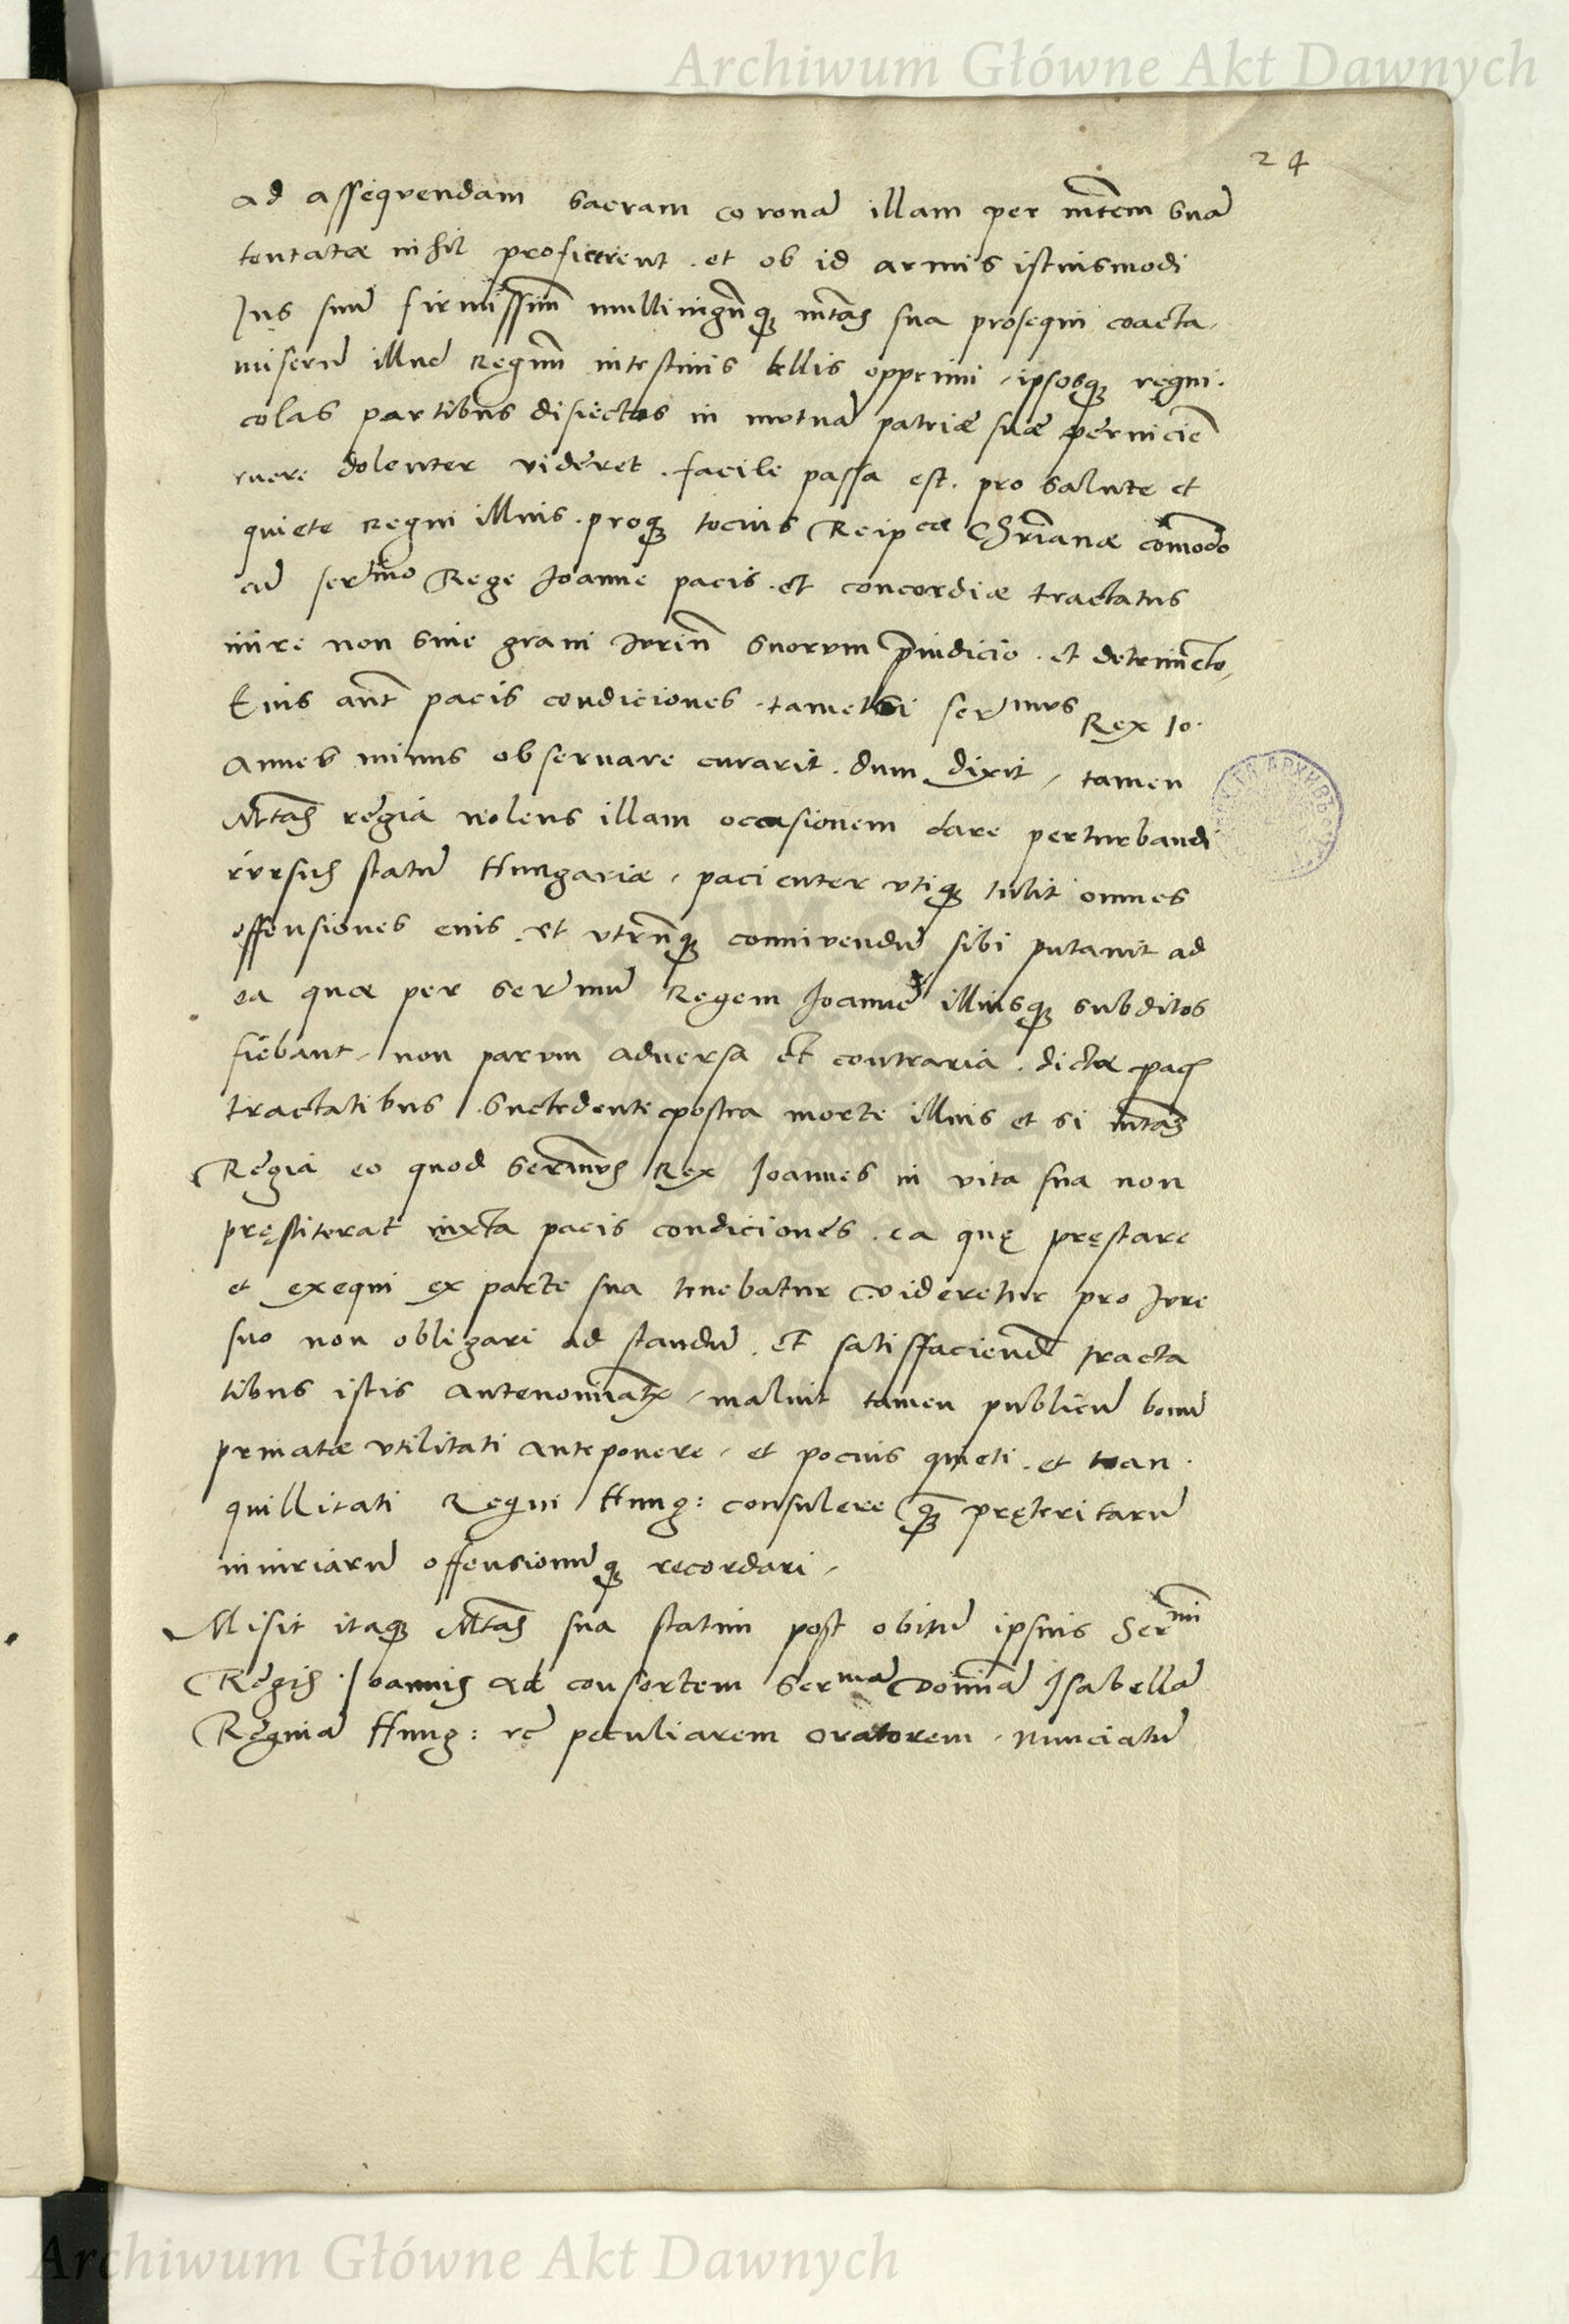 Archiwum Główne Akt Dawnych
24
ad assequendam sacram coronā illam per mtem suā
tentatæ nihil proficerent . et ob id armis istiusmodi
Jus suū firmissim̄
mtas sua prosequi coacta,
miserū illud Regnm̄ intestinis bellis opprimi , ipsosq; regni.
colas partibus disiectos in mutuā patriæ suæ perniciē
ruere dolenter videret . facile passa est . pro salute et
quiete Regni illius . proq; tocius Reipcæ Chrīanæ cōmodo
cū sermo Rege Joanne pacis . et concordiæ tractatus
inire non sine graui Juriū suorum p̄iudicio . et detrimēto,
Euis aūt pacis condiciones . tametsi sermus Rex Jo.
annes minus obseruare curarit . dum vixit , tamen
Mtas regia nolens illam occasionem dare perturbandi
rursus statū Hungariæ , pacienter vtiq; tulit omnes
offensiones euis . et vtrūq; conniuendū sibi putauit ad
ea quæ per sermū Regem Joannē illiusq; subditos
fiebant , non parum aduersa et contraria . dictæ pacis
tractatibus . Succedente postea morte illius et si mtas
Regia eo quod sermus Rex Joannes in vita sua non
pręstiterat iuxta pacis condiciones . ea quę pręstare
et exequi ex parte sua tenebatur videretur pro Jure
suo non obligari ad standū . et satisfaciendū tracta
tibus istis antenominatis , maluit tamen publicū bonū
priuatæ vtilitati anteponere , et pocius quieti . et tran.
quillitati Regni Hung: consulere q̄; pręteritarū
iniuriarū offensionūq; recordari ,
Misit itaq; Mtas sua statim post obitū ipsius Sermi
Regis . Joannis ad consortem sermā Dominā Jsabellā
Reginā Hung: rē peculiarem oratorem , nunciatū
Archiwum Główne Akt Dawnych